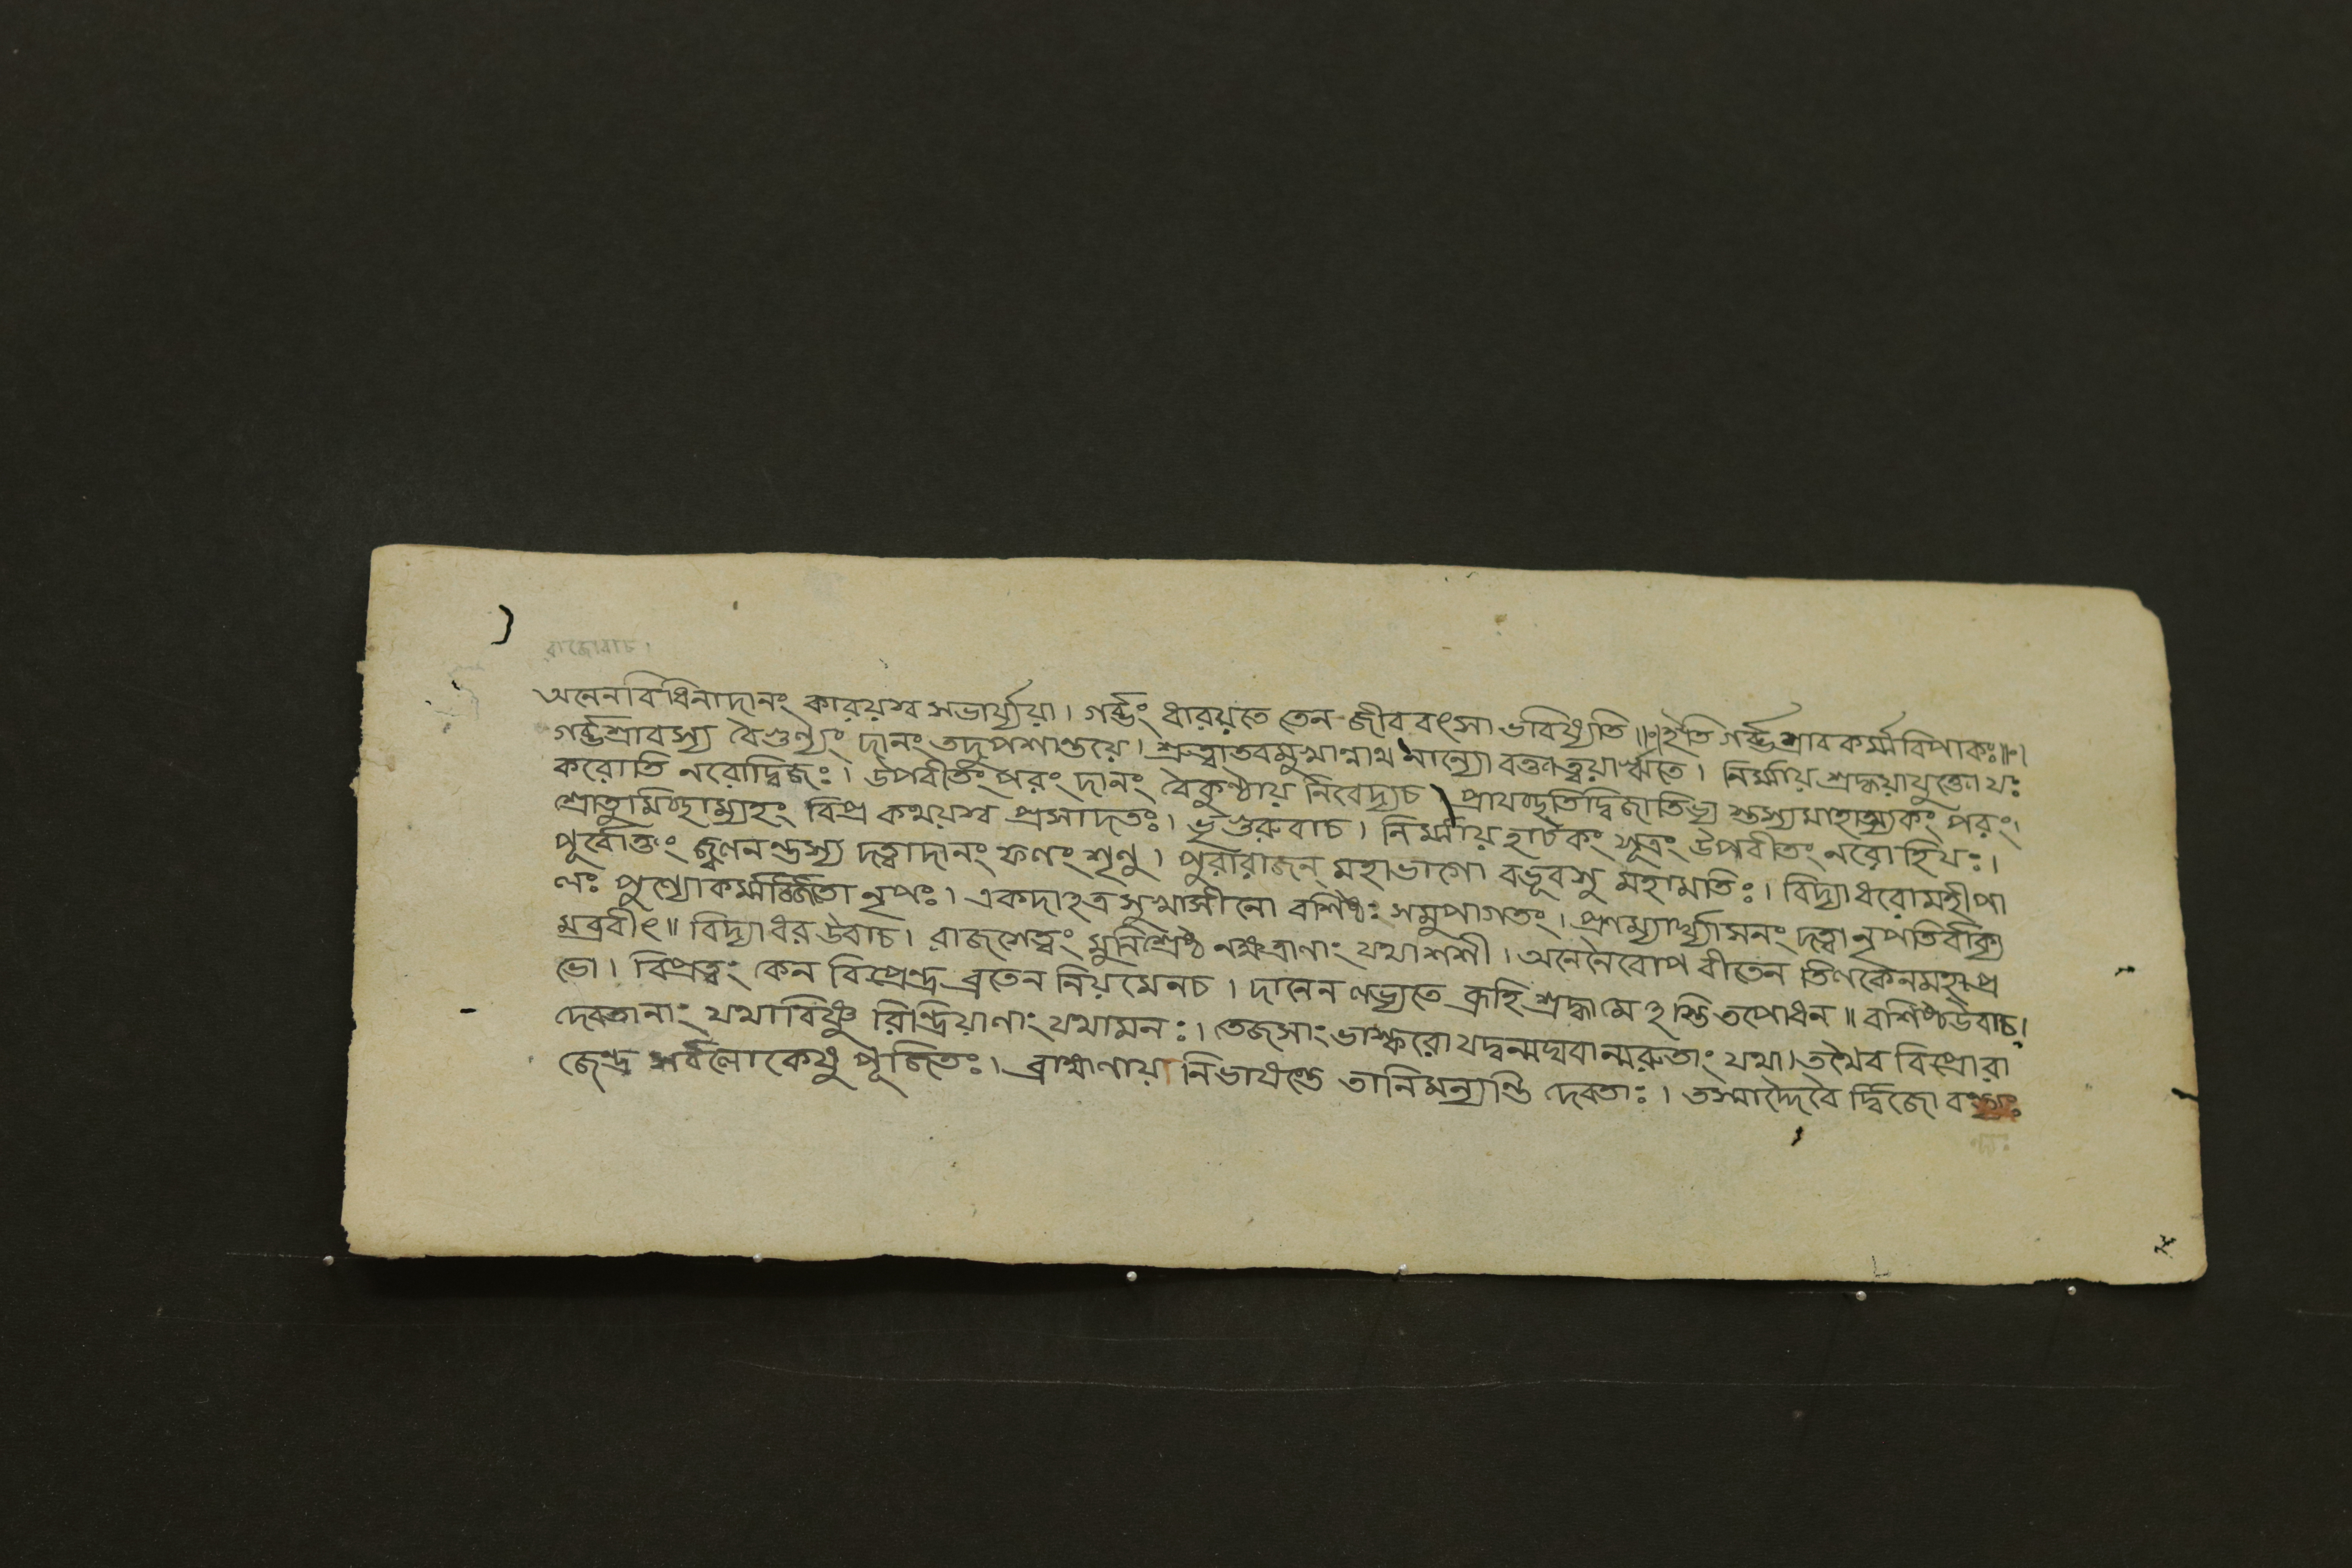 রাজোবাচ।
অনেনবিধিনাদানং কারয়স্ব সভার্য্যয়া। গর্ব্ভং ধারয়তে তেন জীববৎসা ভবিষ্যতি॥ঃ॥ইতি গর্ব্ভশ্রাবকর্ম্মবিপাকঃ॥ঃ।
গর্ব্ভশ্রাবস্য বৈগুণ্যং দানং তদুপশান্তয়ে। শ্রুত্বাতবমুখান্নাথ নান্যো বক্তাত্বয়াঋতে। নির্ম্মায় শ্রদ্ধয়াযুক্তো যঃ
করোতি নরোদ্বিজঃ। উপবীতংপরং দানং বৈকুণ্ঠায় নিবেদ্যচ। প্রাযচ্ছতিদ্বিজাতিভ্য স্তস্যমাহাত্ম্যকং পরং।
শ্রোতুমিচ্ছাম্যহং বিপ্র কথয়স্ব প্রসাদতঃ। ভৃগুরুবাচ। নির্ম্মায় হাটকং সূত্রং উপবীতং নরোহিযঃ।
পূর্বোক্তং দত্বাদানং ফলং শৃণু। পুরারাজন্ মহাভাগো বভূবসু মহামতিঃ। বিদ্যাধরোমহীপা
লঃ পুণ্যোকর্ম্মার্জ্জিতা নৃপঃ। একদাহত্র সুখাসীনো বশিষ্ঠঃ সমুপাগতং। প্রণম্যার্ঘ্যাসনং দত্বা নৃপতির্বাক্য
মব্রবীৎ॥ বিদ্যাধর উবাচ। রাজশেত্বং মুনিশ্রেষ্ঠ নক্ষত্রাণাং যথাশশী। অনেনৈবোপ বীতেন তিলকেনমহাপ্র
ভো। বিপ্রত্বং কেন বিপ্রেন্দ্র ব্রতেন নিয়মেনচ। দানেন লভ্যতে ব্রূহি শ্রদ্ধামে হস্তি তপোধন॥ বশিষ্ঠউবাচ।
দেবতানাং যথাবিষ্ণু রিন্দ্রিয়াণাং যথামনঃ। তেজসাং ভাস্করো যদ্বন্মঘবান্মরুতাং যথা। তথৈব বিপ্রোরা
জেন্দ্র সর্বলোকেষু পূজিতঃ। ব্রাহ্মণায়ানিভাষন্তে তানিমন্যন্তি দেবতাঃ। তস্মাদ্দৈবৈ র্দ্বিজো